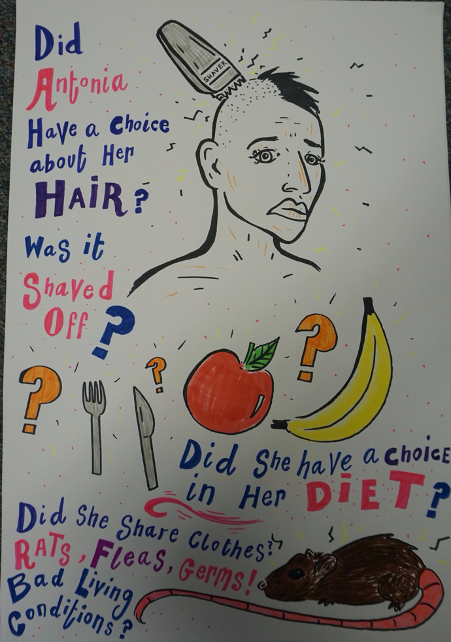 Did
Antonia
Have a choice
about Her
HAIR?
Was it
Shaved
Off?
SHAVER
? ? ?
Did She have a CHOICE
in Her DIET?
Did She Share Clothes?
RATS, Fleas, Germs!
Bad Living
Conditions?